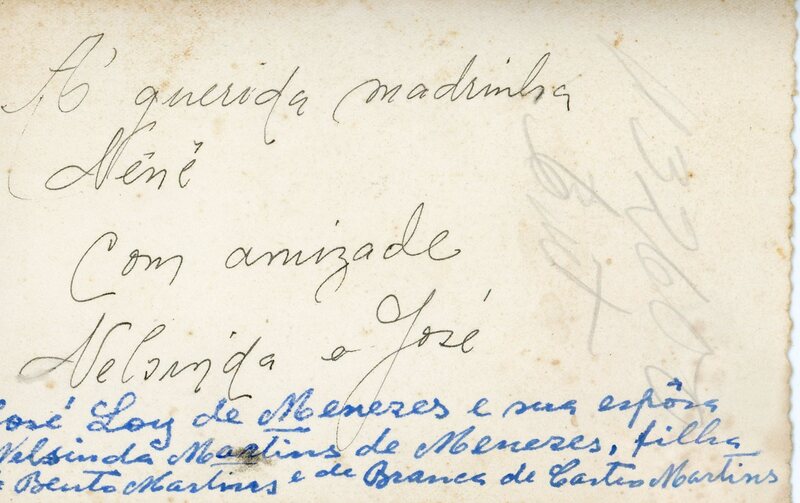 À querida madrinha
Nênê
Com amizade
Nelsinda e José
José Loy de Menezes e sua espôsa
Nelsinda Martins de Menezes, filha
de Bento Martins e de Branca de Castro Martins